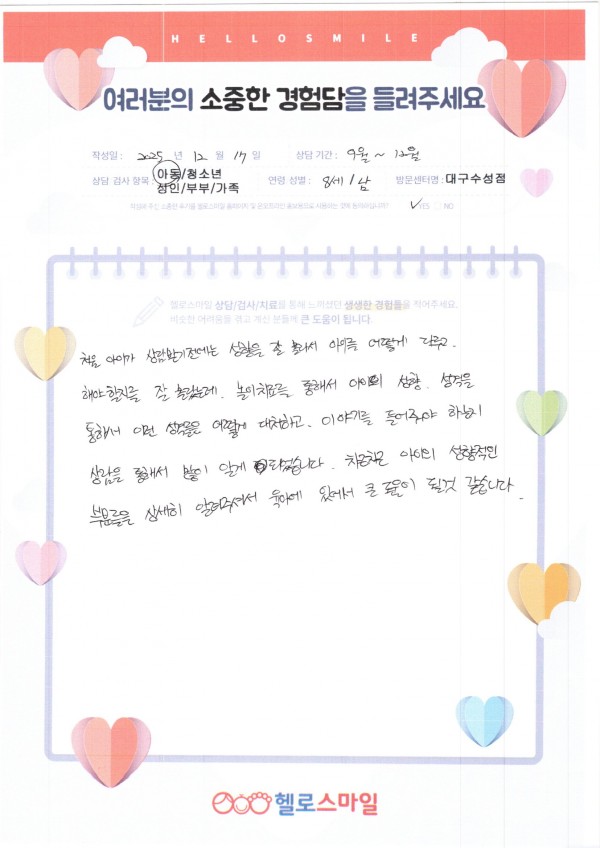 HELLOSMILE
여러분의 소중한 경험담을 들려주세요
작성일 : 2025 년 12 월 17 일 상담 기간 : 9월 ~ 12월
상담 검사 항목 : 아동/청소년 성인/부부/가족 연령 성별 : 8세 / 남 방문센터명 : 대구수성점
작성해 주신 소중한 후기를 헬로스마일 홈페이지 및 온오프라인 홍보용으로 사용하는 것에 동의하십니까? ✓YES NO
헬로스마일 상담/검사/치료를 통해 느끼셨던 생생한 경험들을 적어주세요.
비슷한 어려움을 겪고 계신 분들께 큰 도움이 됩니다.
처음 아이가 상담받기전에는 성향을 잘 몰라서 아이를 어떻게 다루고.
해야 할지를 잘 몰랐는데. 놀이치료를 통해서 아이의 성향. 성격을
통해서 이런 성격들은 어떻게 대처하고. 이야기를 들어줘야 하는지
상담을 통해서 많이 알게 되었습니다. 차근차근 아이의 성향적인
부분들을 상세히 알려주셔서 육아에 있어서 큰 도움이 될것 같습니다.
헬로스마일